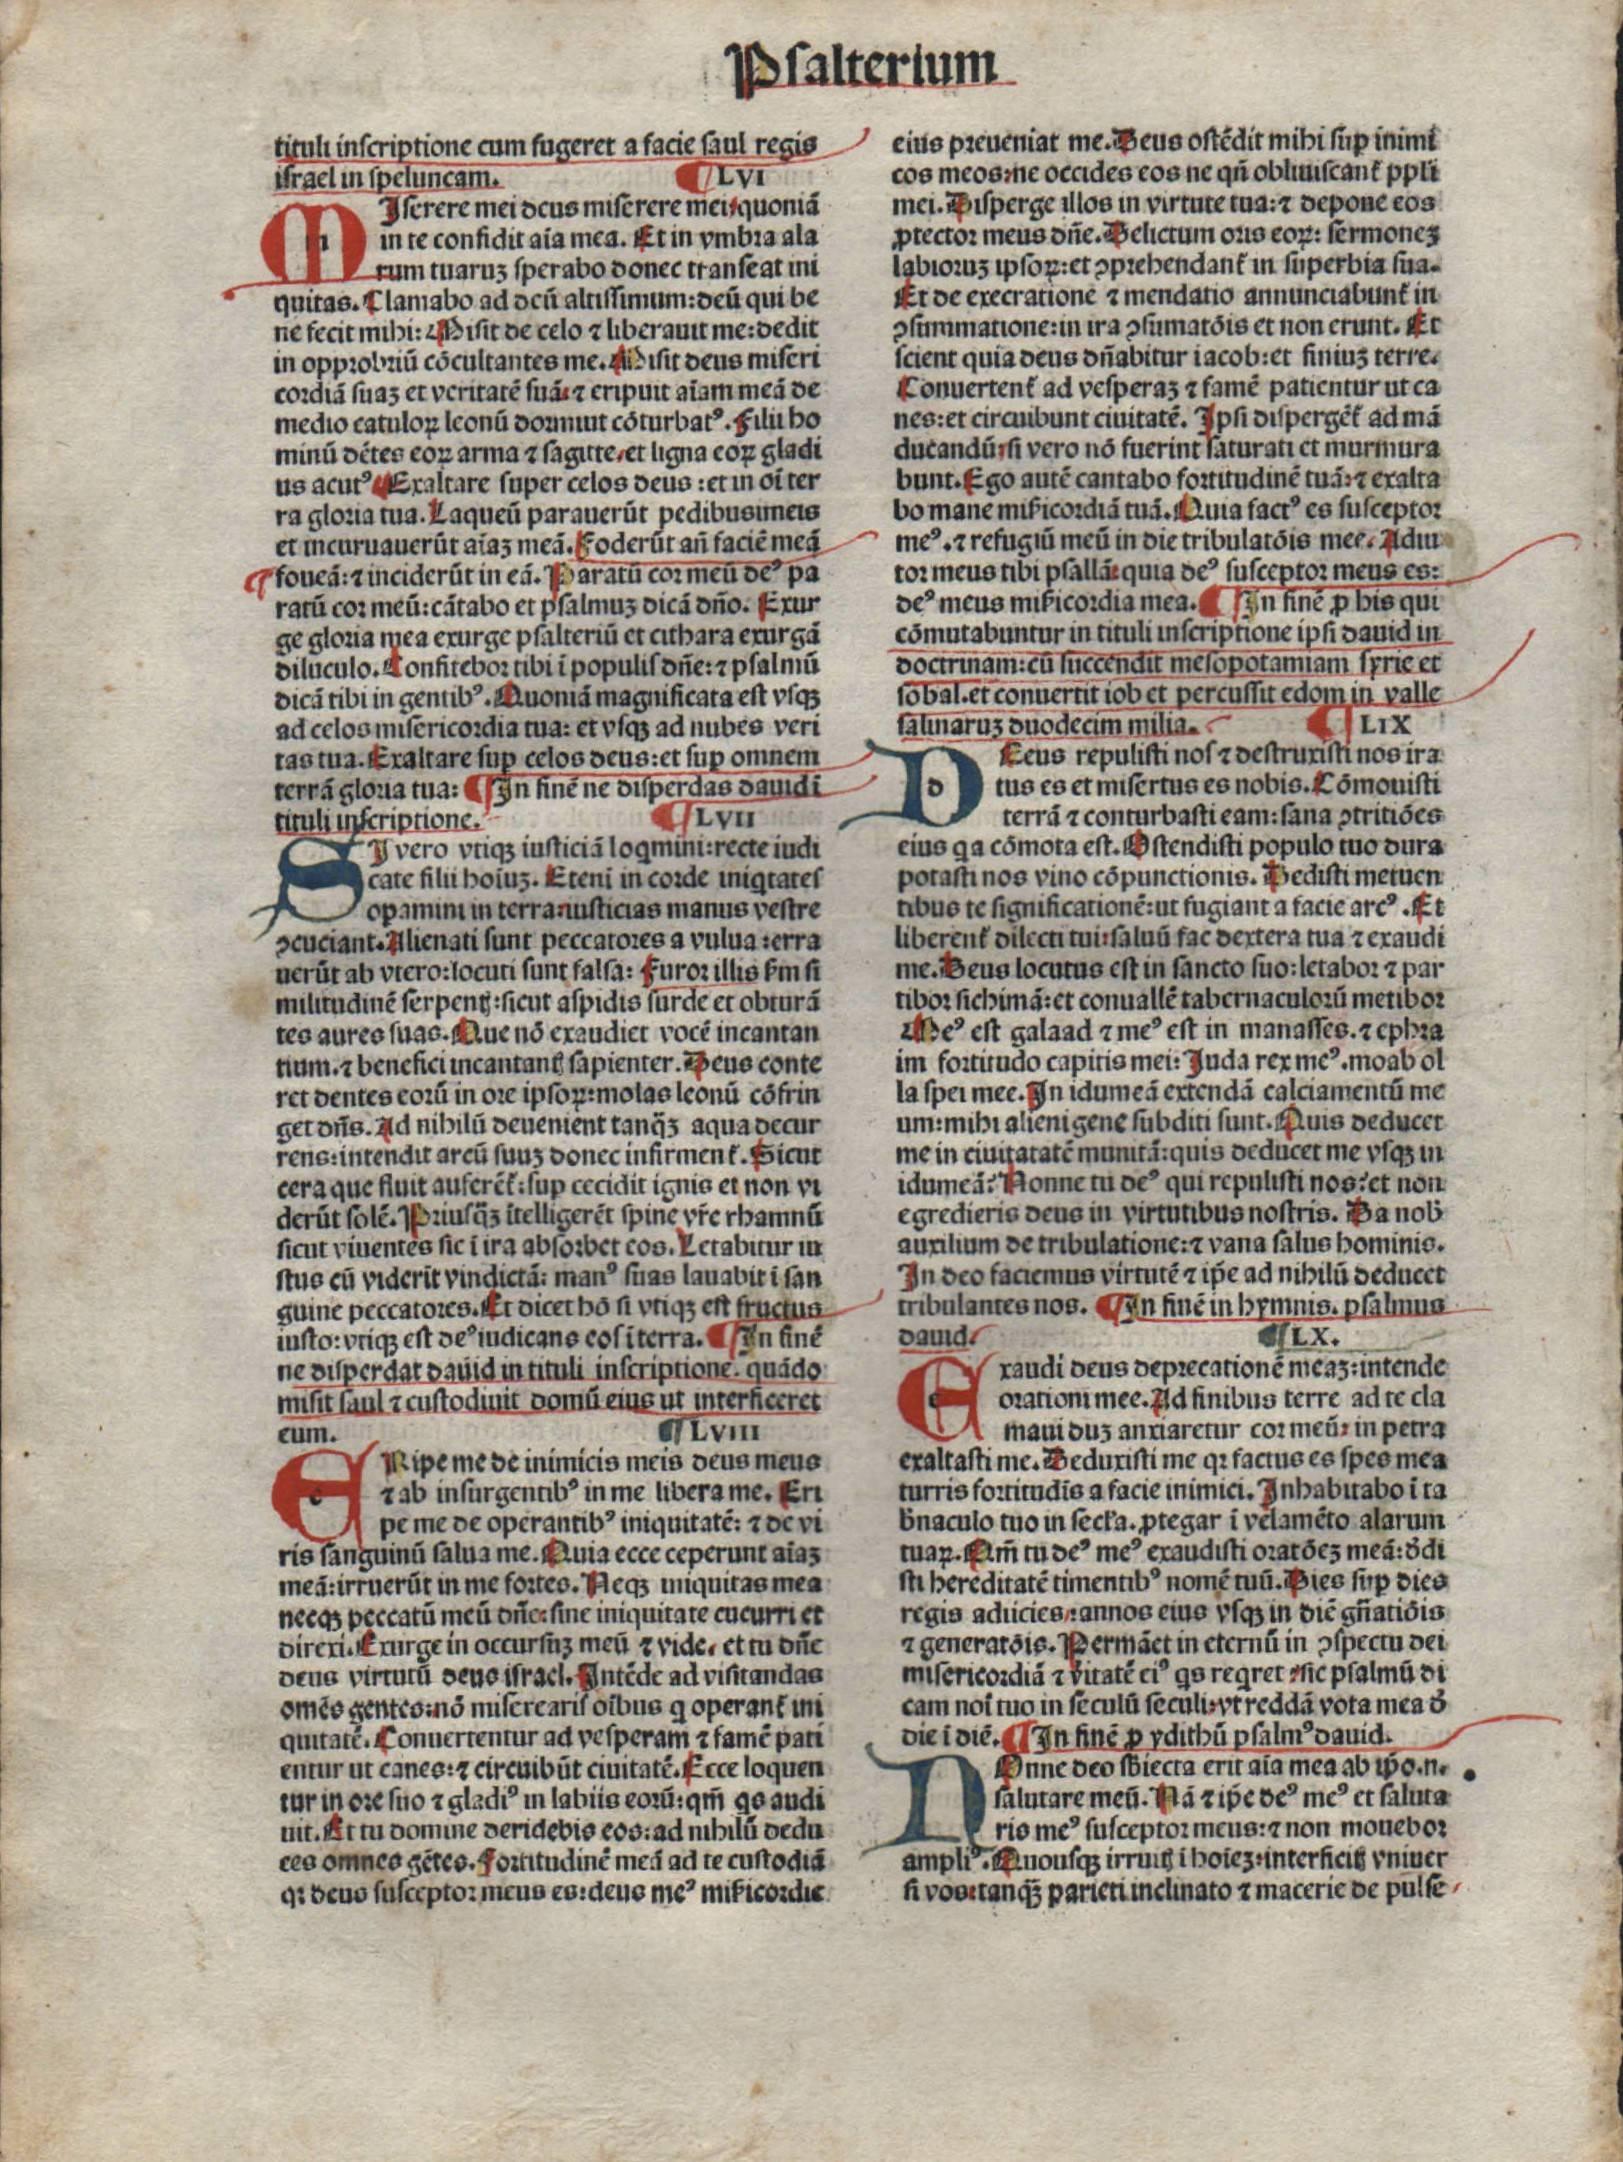 Psalterium
tituli inscriptione cum fugeret a facie saul regis
israel in speluncam. ¶ LVI
MIserere mei deus miserere mei: quoniā
in te confidit aīa mea. Et in vmbra ala
rum tuaruꝫ sperabo donec transeat ini
quitas. Clamabo ad deū altissimum: deū qui be
ne fecit mihi: Misit de celo ⁊ liberauit me: dedit
in opprobriū cōcultantes me. Misit deus miseri
cordiā suaꝫ et veritatē suā: ⁊ eripuit aīam meā de
medio catuloꝝ leonū dormiut cōturbatꝰ. Filii ho
minū dētes eoꝝ arma ⁊ sagitte, et ligna eoꝝ gladi
us acutꝰ Exaltare super celos deus: et in oī ter
ra gloria tua. Laqueū parauerūt pedibusimeis
et incuruauerūt aīaꝫ meā. Foderūt añ faciē meā
foueā: ⁊ inciderūt in eā. Paratū cor meū deꝰ pa
ratū cor meū: cātabo et psalmuꝫ dicā dño. Exur
ge gloria mea exurge psalteriū et cithara exurgā
diluculo. Confitebor tibi ī populis dñe: ⁊ psalmū
dicā tibi in gentibꝰ. Quoniā magnificata est vsqꝫ
ad celos misericordia tua: et vsqꝫ ad nubes veri
tas tua. Exaltare suꝑ celos deus: et suꝑ omnem
terrā gloria tua: ¶ In finē ne disperdas dauidī
tituli inscriptione. ¶ LVII
SI vero vtiqꝫ iusticiā loqmini: recte iudi
cate filii hoīuꝫ. Etenī in corde iniqtates
opamini in terra: iusticias manus vestre
ꝯcuciant. Alienati sunt peccatores a vulua: erra
uerūt ab vtero: locuti sunt falsa: Furor illis ẜm si
militudinē serpentꝭ: sicut aspidis surde et obturā
tes aures suas. Que nō exaudiet vocē incantan
tium. ⁊ benefici incantantꝭ sapienter. Deus conte
ret dentes eorū in ore ipsoꝝ: molas leonū cōfrin
get dñs. Ad nihilū deuenient tanq̄ꝫ aqua decur
rens: intendit arcū suuꝫ donec infirment᷑. Sicut
cera que fluit auferēt᷑: suꝑ cecidit ignis et non vi
derūt solē. Priusq̄ꝫ ītelligerēt spine vr̄e rhamnū
sicut viuentes sic ī ira absorbet eos. Letabitur iu
stus cū viderit vindictā: manꝰ suas lauabit ī san
guine peccatores. Et dicet hō si vtiqꝫ est fructus
iusto: vtiqꝫ est deꝰ iudicans eos ī terra. ¶ In finē
ne disperdat dauid in tituli inscriptione. quādo
misit saul ⁊ custodiuit domū eius ut interficeret
eum. ¶ LVIII
ERipe me de inimicis meis deus meus
⁊ ab insurgentibꝰ in me libera me. Eri
pe me de operantibꝰ iniquitatē: ⁊ de vi
ris sanguinū salua me. Quia ecce ceperunt aīaꝫ
meā: irruerūt in me fortes. Neqꝫ iniquitas mea
neqꝫ peccatū meū dñe: sine iniquitate cucurri et
direxi. Exurge in occursuꝫ meū ⁊ vide. et tu dñe
deus virtutū deus israel. Intēde ad visitandas
omēs gentes: nō miserearis oībus q operant᷑ ini
quitatē. Conuertentur ad vesperam ⁊ famē pati
entur ut canes: ⁊ circuibūt ciuitatē. Ecce loquen
tur in ore suo ⁊ gladiꝰ in labiis eorū: qm̄ qs audi
uit. Et tu domine deridebis eos: ad nihilū dedu
ces omnes gētes. Fortitudinē meā ad te custodiā
qꝛ deus susceptor meus es: deus meꝰ miẜicordie
eius preueniat me. Deus ostēdit mihi suꝑ inimi
cos meos: ne occides eos ne qñ obliuiscant᷑ ppl̄i
mei. Disperge illos in virtute tua: ⁊ depone eos
ꝓtector meus dñe. Delictum oris eoꝝ: sermoneꝫ
labioruꝫ ipsoꝝ: et ꝯprehendant᷑ in superbia sua.
Et de execratione ⁊ mendatio annunciabunt᷑ in
ꝯsummatione: in ira ꝯsumatōis et non erunt. Et
scient quia deus dñabitur iacob: et finiuꝫ terre.
Conuertent᷑ ad vesperaꝫ ⁊ famē patientur ut ca
nes: et circuibunt ciuitatē. Ipsi dispergēt᷑ ad mā
ducandū: si vero nō fuerint saturati et murmura
bunt. Ego autē cantabo fortitudinē tuā: ⁊ exalta
bo mane miẜicordiā tuā. Quia factꝰ es susceptor
meꝰ. ⁊ refugiū meū in die tribulatōis mee. Adiu
tor meus tibi psallā: quia deꝰ susceptor meus es:
deꝰ meus miẜicordia mea. ¶ In finē ꝓ his qui
cōmutabuntur in tituli inscriptione ipsi dauid in
doctrinam: cū succendit mesopotamiam syrie et
sobal. et conuertit iob et percussit edom in valle
salinaruꝫ duodecim milia. ¶ LIX
DEus repulisti nos ⁊ destruxisti nos ira
tus es et misertus es nobis. Cōmouisti
terrā ⁊ conturbasti eam: sana ꝯtritiōes
eius qa cōmota est. Ostendisti populo tuo dura
potasti nos vino cōpunctionis. Dedisti metuen
tibus te significationē: ut fugiant a facie arcꝰ. Et
liberent᷑ dilecti tui: saluū fac dextera tua ⁊ exaudi
me. Deus locutus est in sancto suo: letabor ⁊ par
tibor sichimā: et conuallē tabernaculorū metibor
Meꝰ est galaad ⁊ meꝰ est in manasses. ⁊ ephra
im fortitudo capitis mei: Juda rex meꝰ. moab ol
la spei mee. In idumeā extendā calciamentū me
um: mihi alienigene subditi sunt. Quis deducet
me in ciuitatatē munitā: quis deducet me vsqꝫ in
idumeā? Nonne tu deꝰ qui repulisti nos? et non
egredieris deus in virtutibus nostris. Da nob̄
auxilium de tribulatione: ⁊ vana salus hominis.
In deo faciemus virtutē ⁊ ip̄e ad nihilū deducet
tribulantes nos. ¶ In finē in hymnis. psalmus
dauid. ¶ LX.
Exaudi deus deprecationē meaꝫ: intende
orationi mee. Ad finibus terre ad te cla
maui duꝫ anxiaretur cor meū: in petra
exaltasti me. Deduxisti me qꝛ factus es spes mea
turris fortitudīs a facie inimici. Inhabitabo ī ta
b̄naculo tuo in secl̄a. ꝓtegar ī velamēto alarum
tuaꝝ. Qm̄ tu deꝰ meꝰ exaudisti oratōeꝫ meā: ōdi
sti hereditatē timentibꝰ nomē tuū. Dies suꝑ dies
regis adiicies: annos eius vsqꝫ in diē gn̄atiōis
⁊ generatōis. Permāet in eternū in ꝯspectu dei
misericordiā ⁊ v̄itatē eiꝰ qs reqret: sic psalmū di
cam noī tuo in seculū seculi: vt reddā vota mea ō
die ī diē. ¶ In finē ꝓ ydithū psalmꝰ dauid.
NOnne deo sb̄iecta erit aīa mea ab ip̄o. n.
salutare meū. Nā ⁊ ip̄e deꝰ meꝰ et saluta
ris meꝰ susceptor meus: ⁊ non mouebor
ampliꝰ. Quousqꝫ irruitꝭ ī hoīeꝫ: interficitꝭ vniuer
si vos: tanq̄ꝫ parieti inclinato ⁊ macerie de pulse